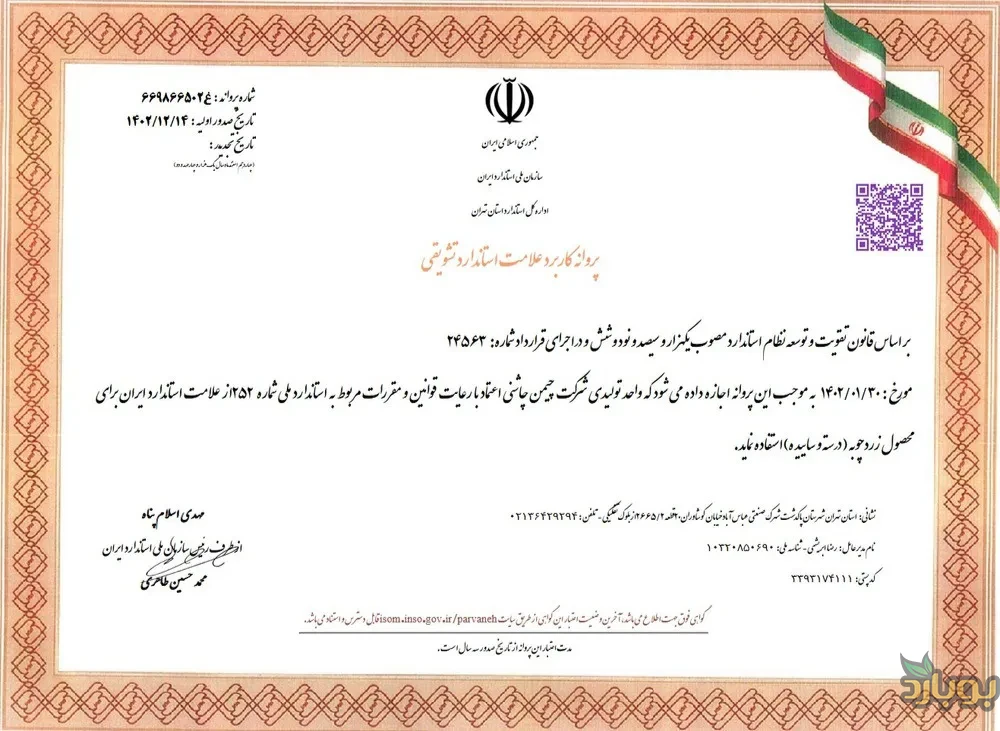 شماره پرواند: غ۶۶۹۸۶۶۵۰۲
تاریخ صدور اولیه: ۱۴۰۲/۱۲/۱۴
تاریخ تمدید:
جمهوری اسلامی ایران
سازمان ملی استاندارد ایران
اداره کل استاندارد استان تهران
پروانه کاربرد علامت استاندارد تشویقی
بر اساس قانون تقویت و توسعه نظام استاندارد مصوب یکهزار و سیصد و نود و شش و در اجرای قرارداد شماره: ۲۴۵۶۳
مورخ: ۱۴۰۲/۰۱/۳۰ به موجب این پروانه اجازه داده می شود که واحد تولیدی شرکت چیمن چاشنی اعتماد با رعایت قوانین و مقررات مربوط به استاندارد ملی شماره ۲۵۲ از علامت استاندارد ایران برای
محصول زردچوبه (درسته و ساییده) استفاده نماید.
نشانی: استان تهران شهرستان پاکدشت شهرک صنعتی عباس آباد خیابان کوشاوران ۲۰ قطعه ۲۶۶۵/۲ از بلوک تفکیکی - تلفن: ۰۲۱۳۶۴۲۹۲۹۴
نام مدیرعامل: رضا ابریشمی - شناسه ملی: ۱۰۳۲۰۸۵۰۶۹۰
کد پستی: ۳۳۹۳۱۷۴۱۱۱
مهدی اسلام پناه
از طرف رئیس سازمان ملی استاندارد ایران
محمد حسین طاهری
گواهی فوق جهت اطلاع می باشد، آخرین وضعیت اعتبار این گواهی از طریق سایت isom.inso.gov.ir/parvaneh قابل دسترس و استناد می باشد.
مدت اعتبار این پروانه از تاریخ صدور سه سال است.
بوبارد